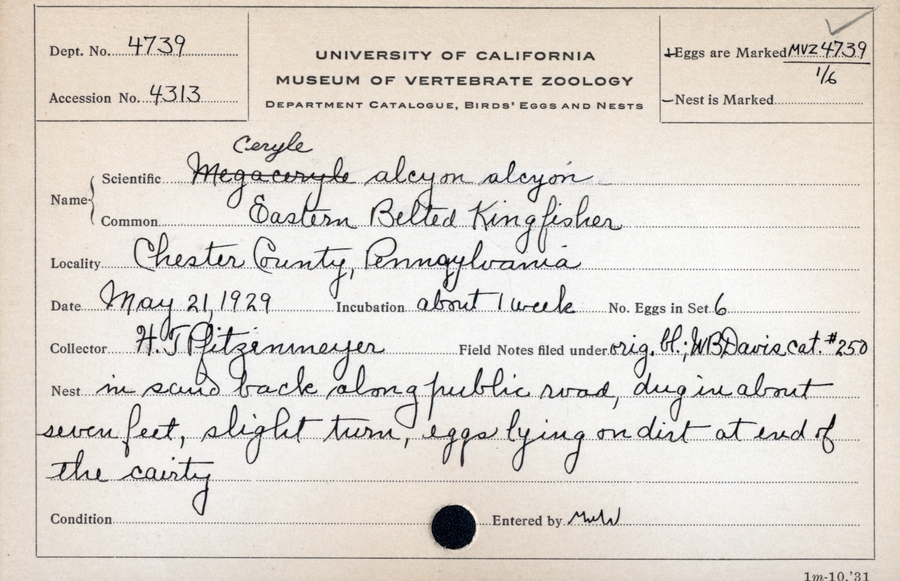 Dept. No. 4739
Accession No. 4313
UNIVERSITY OF CALIFORNIA
MUSEUM OF VERTEBRATE ZOOLOGY
DEPARTMENT CATALOGUE, BIRDS' EGGS AND NESTS
Eggs are Marked MVZ 4739
1/6
Nest is Marked
Ceryle
Name Scientific Megaceryle alcyon alcyon
Common Eastern Belted Kingfisher
Locality Chester County, Pennsylvania
Date May 21, 1929 Incubation about 1 week No. Eggs in Set 6
Collector H. J Pfitzenmeyer Field Notes filed under orig. bl.; WBDavis cat. #250
Nest in sand back along public road, dug in about
seven feet, slight turn, eggs lying on dirt at end of
the cairty
Condition Entered by
1m-10,'31